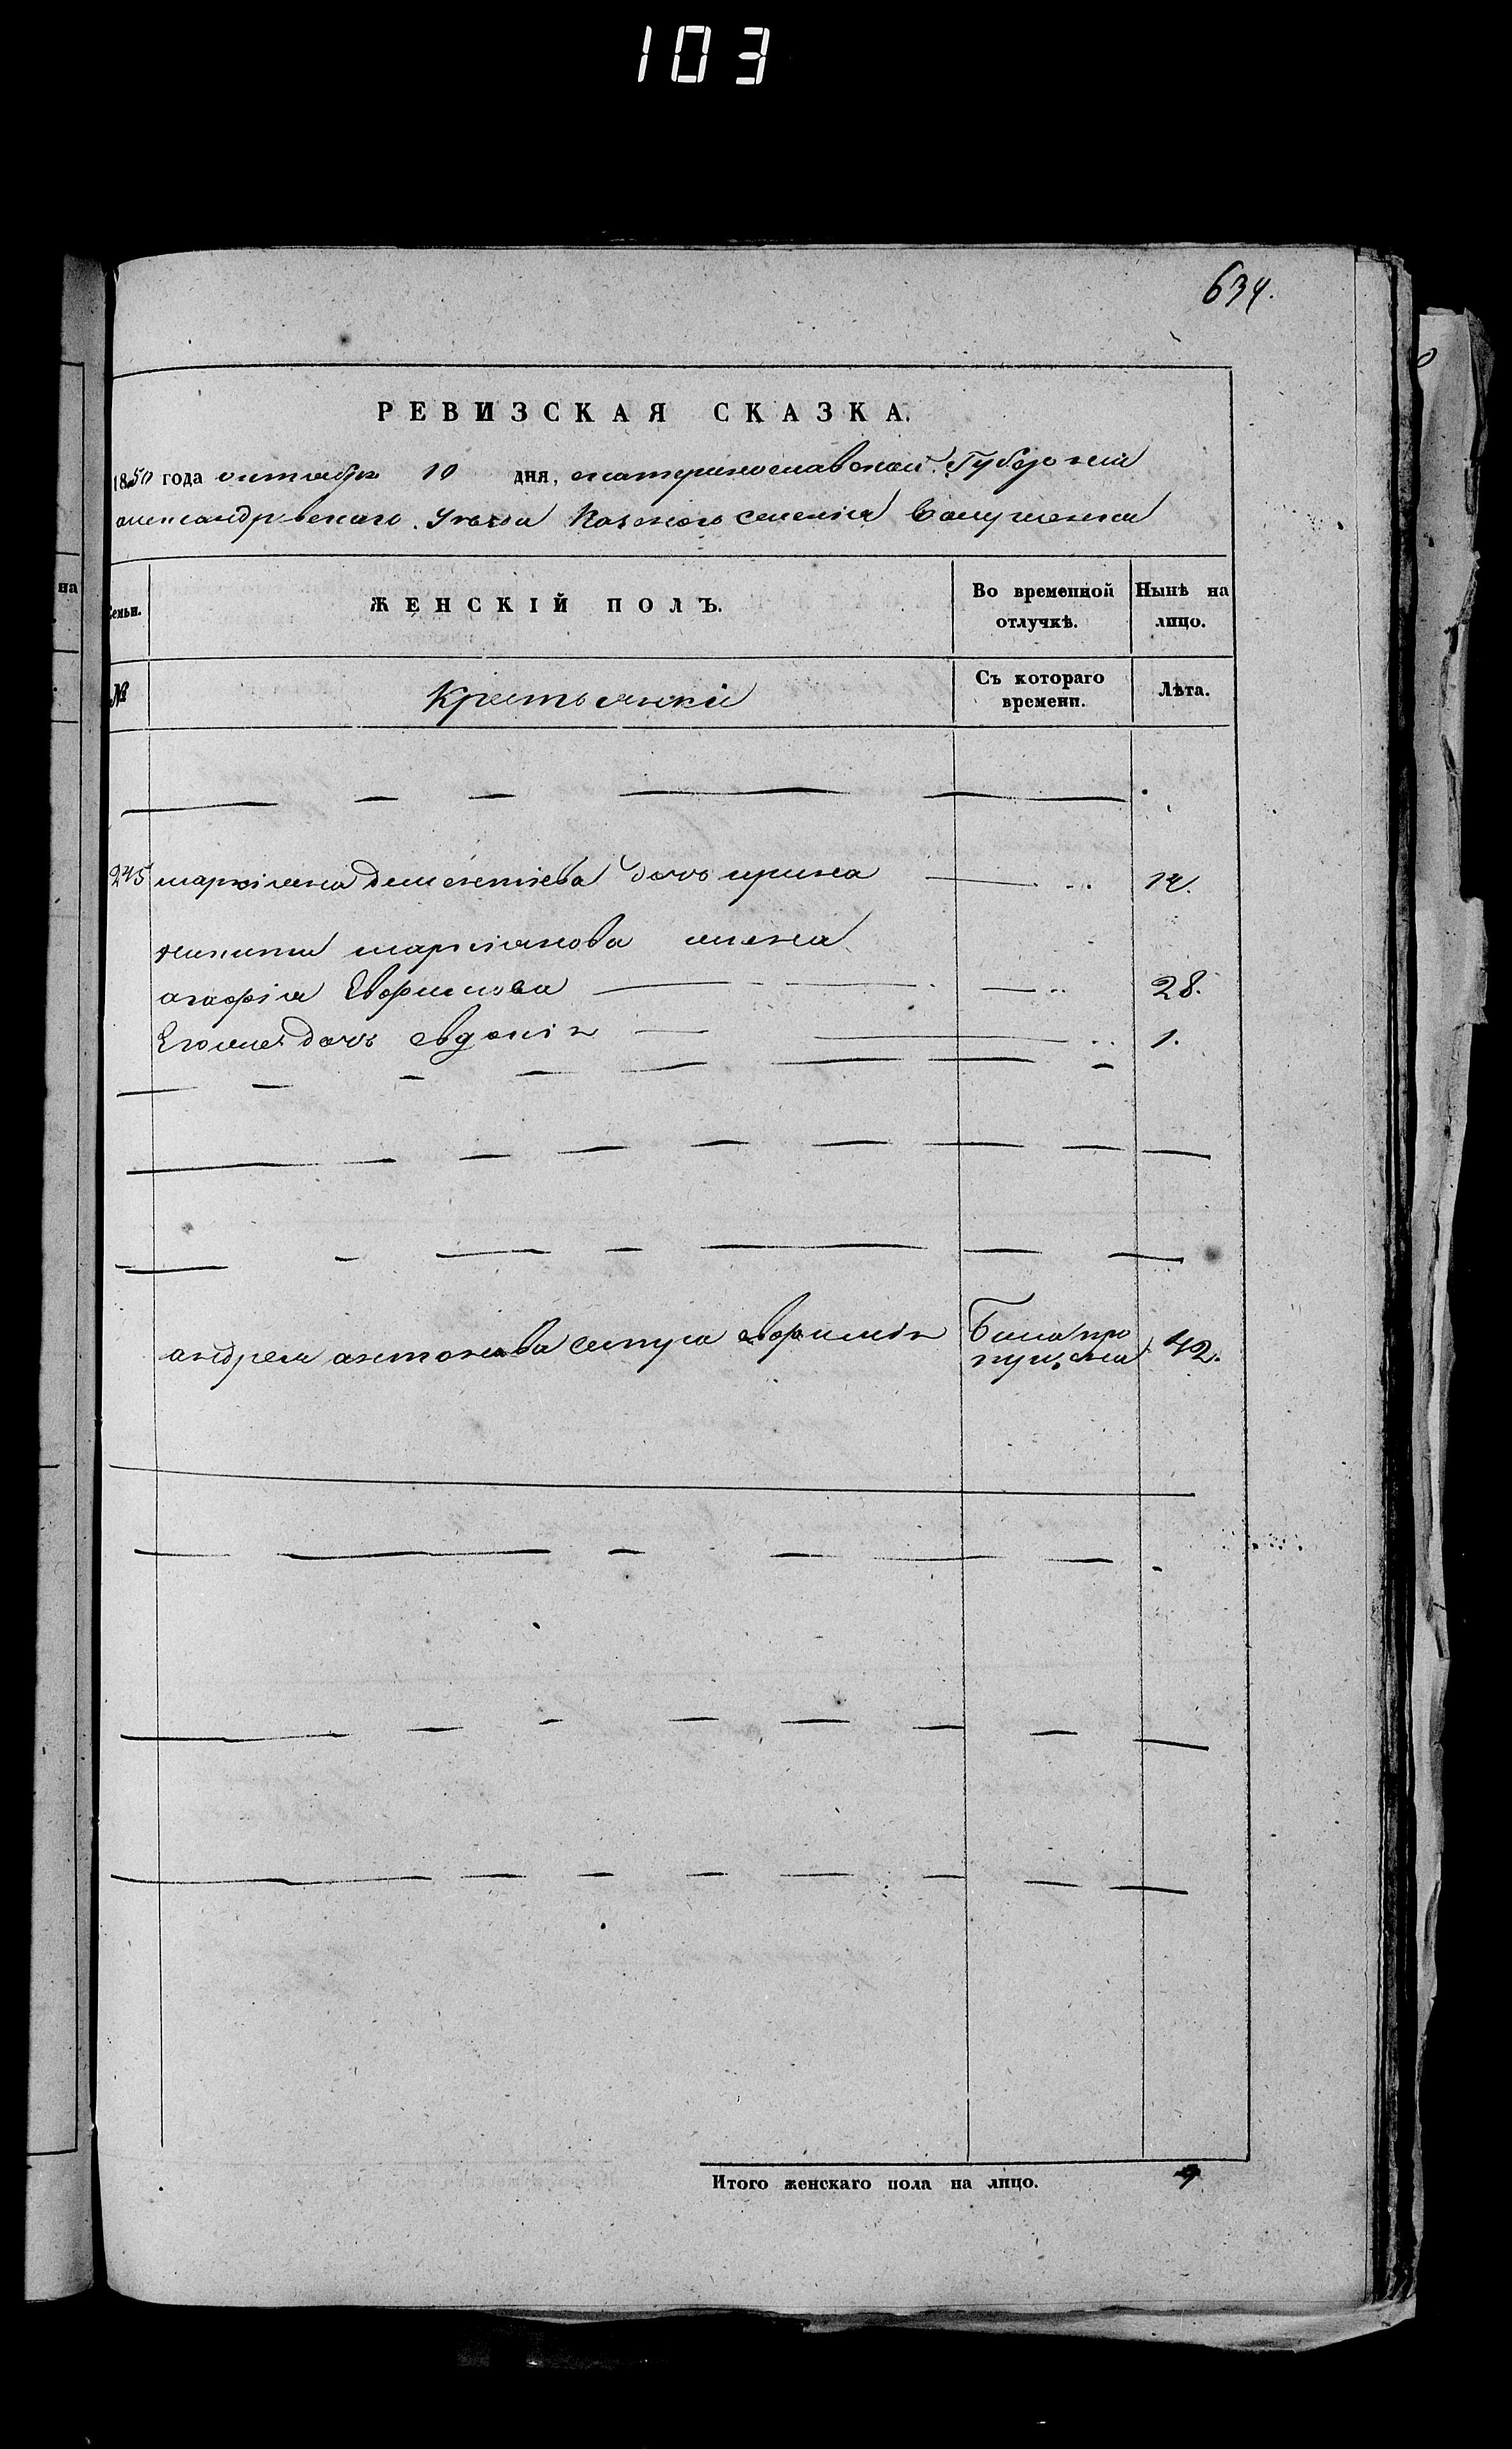 103
634.
РЕВИЗСКАЯ СКАЗКА.
1850 года октября 10 дня, екатеринославской Губернии
александрвскаго Уезда Казеного селенія
на
Семьи.
ЖЕНСКІЙ ПОЛЪ.
Во временной отлучкѣ.
Нынѣ на лицо.
№
Крестьянки
Съ котораго времени.
Лѣта.
245 маркіяна дементіева дочь ирина 12.
никити маркіянова жена
агафія Евфимова 28.
Егоже дочь евдокія 1.
андрея антонова сестра евфимія Била про пущена 42.
Итого женскаго пола на лицо.